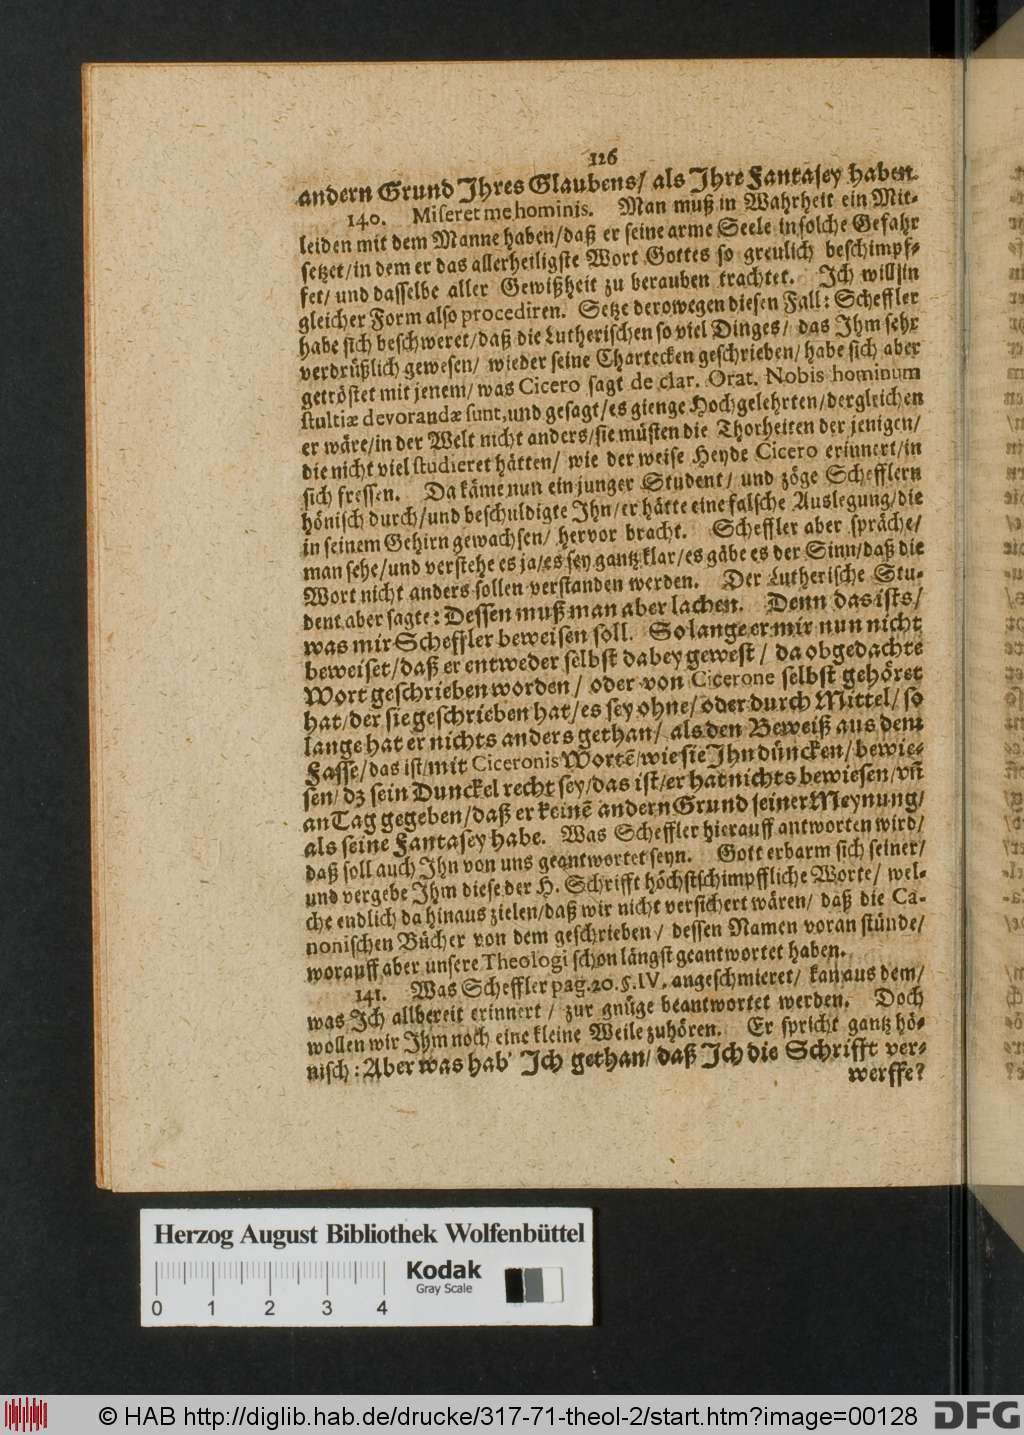 126
andern Grund Ihres Glaubens/ als Ihre Fantasey haben.
140. Miseret me hominis. Man muß in Wahrheit ein Mit-
leiden mit dem Manne haben/daß er seine arme Seele in solche Gefahr
setzet/in dem er das allerheiligste Wort Gottes so greulich beschimpf-
fet/ und dasselbe aller Gewißheit zu berauben trachtet. Ich will in
gleicher Form also procediren. Setze derowegen diesen Fall: Scheffler
habe sich beschweret/daß die Lutherischen so viel Dinges/ das Ihm sehr
verdrüßlich gewesen/ wieder seine Chartecken geschrieben/ habe sich aber
getröstet mit jenem/ was Cicero sagt de clar. Orat. Nobis hominum
stultiæ devorandæ sunt, und gesagt/es gienge Hochgelehrten/dergleichen
er wäre/in der Welt nicht anders/sie müsten die Thorheiten der jenigen/
die nicht viel studieret hätten/ wie der weise Heyde Cicero erinnert/in
sich fressen. Da käme nun ein junger Student/ und zöge Schefflern
hönisch durch/und beschuldigte Ihn/er hätte eine falsche Auslegung/die
in seinem Gehirn gewachsen/ hervor bracht. Scheffler aber spräche/
man sehe/und verstehe es ja/es sey gantz klar/es gäbe es der Sinn/daß die
Wort nicht anders sollen verstanden werden. Der Lutherische Stu-
dent aber sagte: Dessen muß man aber lachen. Denn das ists/
was mir Scheffler beweisen soll. So lange er mir nun nicht
beweiset/daß er entweder selbst dabey gewest/ da obgedachte
Wort geschrieben worden/ oder von Cicerone selbst gehöret
hat/der sie geschrieben hat/es sey ohne/oder durch Mittel/ so
lange hat er nichts anders gethan/ als den Beweiß aus dem
Fasse/das ist/mit Ciceronis Wortē/wie sie Ihn düncken/bewie-
sen/ dz sein Dunckel recht sey/das ist/er hat nichts bewiesen/vñ
an Tag gegeben/daß er keinē andern Grund seiner Meynung/
als seine Fantasey habe. Was Scheffler hierauff antworten wird/
daß soll auch Ihn von uns geantwortet seyn. Gott erbarm sich seiner/
und vergebe Ihm diese der H. Schrifft höchstschimpffliche Worte/ wel-
che endlich da hinaus zielen/daß wir nicht versichert wären/ daß die Ca-
nonischen Bücher von dem geschrieben/ dessen Namen voran stünde/
worauff aber unsere Theologi schon längst geantwortet haben.
141. Was Scheffler pag. 20. §. IV. angeschmieret/ kan aus dem/
was Ich allbereit erinnert/ zur gnüge beantwortet werden. Doch
wollen wir Ihm noch eine kleine Weile zuhören. Er spricht gantz hö-
nisch: Aber was hab' Ich gethan/ daß Ich die Schrifft ver-
werffe?
Herzog August Bibliothek Wolfenbüttel
Kodak
Gray Scale
0 1 2 3 4
© HAB http://diglib.hab.de/drucke/317-71-theol-2/start.htm?image=00128
DFG